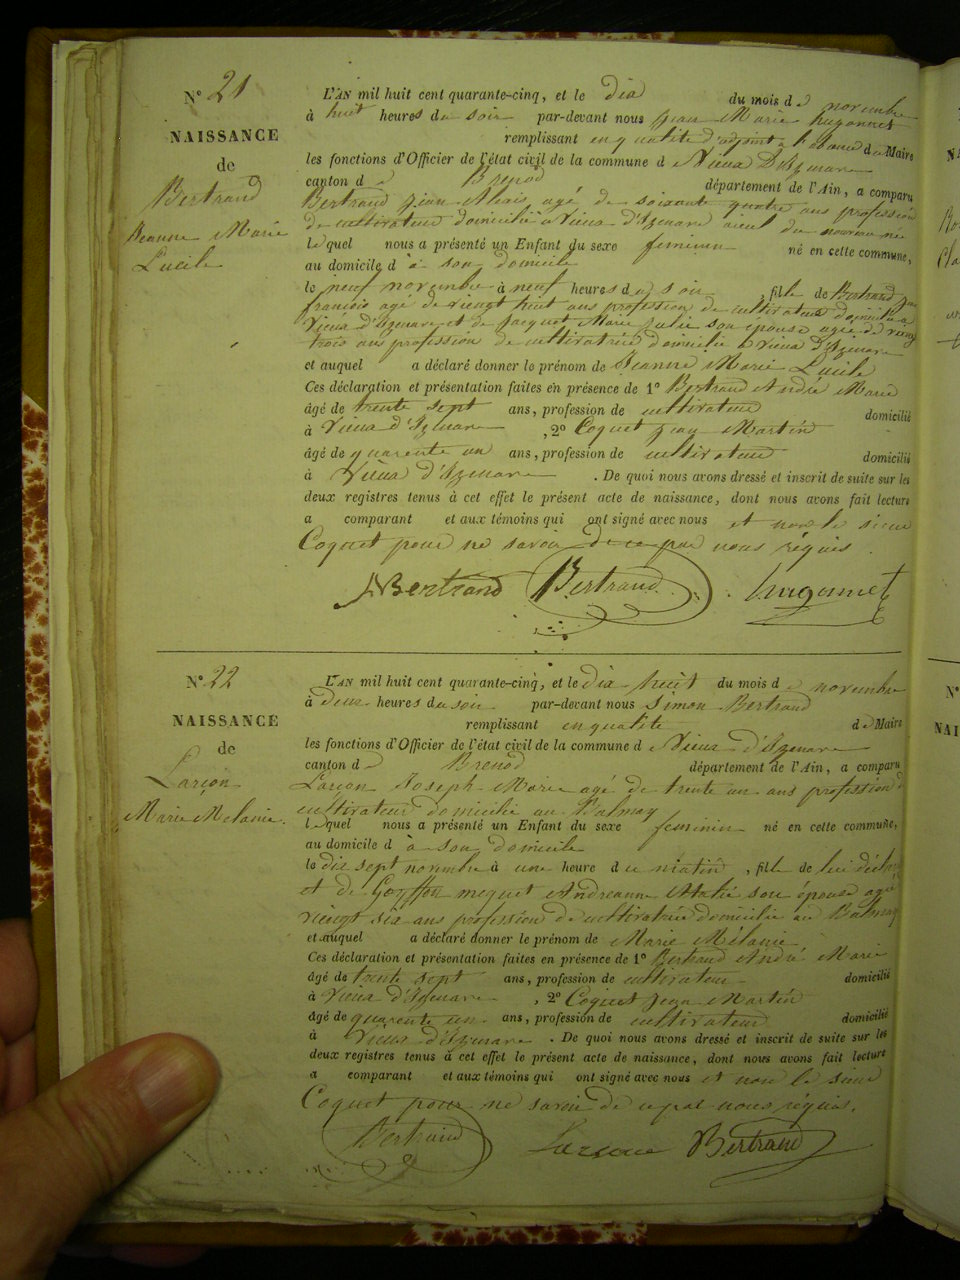 N° 21
NAISSANCE
de
Bertrand
Jeanne Marie
Lucile
L'AN mil huit cent quarante-cinq, et le dix du mois de novembre
à huit heures du soir par-devant nous jean Marie hugonnet
remplissant en qualité d'adjoint a l'absence du Maire
les fonctions d'Officier de l'état civil de la commune de Vieux D'Izenave
canton de Brenod département de l'Ain, a comparu
Bertrand jean Alexis agé de soixante quatre ans profession
de cultivateur domicilié a Vieux d'Izenave aieul du nouveau né
lequel nous a présenté un Enfant du sexe feminin né en cette commune,
au domicile d à son domicile
le neuf novembre à neuf heures du soir, fille de Bertrand jean
françois agé de vingt huit ans profession de cultivateur domicilié a
Vieux d'Izenave et de Jacquet Marie Julie son épouse agée de vingt
trois ans profession de cultivatrice domicilié a Vieux d'Izenave
et auquel a déclaré donner le prénom de Jeanne Marie Lucile
Ces déclaration et présentation faites en présence de 1° Bertrand André Marie
âgé de trente sept ans, profession de cultivateur domicilié
à Vieux d'Izenave, 2° Coquet jean Martin
âgé de quarente un ans, profession de cultivateur domicilié
à Vieux d'Izenave. De quoi nous avons dressé et inscrit de suite sur les
deux registres tenus à cet effet le présent acte de naissance, dont nous avons fait lecture
a comparant et aux témoins qui ont signé avec nous et non le sieur
Coquet pour ne savoir de ce par nous réquis.
Bertrand Bertrand hugonnet
N° 22
NAISSANCE
de
Larçon
Marie Melanie.
L'AN mil huit cent quarante-cinq, et le dix huit du mois de novembre
à deux heures du soir par-devant nous Simon Bertrand
remplissant en qualité de Maire
les fonctions d'Officier de l'état civil de la commune de Vieux d'Izenave
canton de Brenod département de l'Ain, a comparu
Larçon Joseph Marie agé de trente un ans profession de
cultivateur domicilié au Balmay
lequel nous a présenté un Enfant du sexe feminin né en cette commune,
au domicile d à son domicile
le dix sept novembre à une heure du matin, fille de lui déclarant
et de Andreanne son épouse agée
vingt six ans profession de cultivatrice domicilié au Balmay
et auquel a déclaré donner le prénom de Marie Mélanie
Ces déclaration et présentation faites en présence de 1° Bertrand André Marie
âgé de trente sept ans, profession de cultivateur domicilié
à Vieux d'Izenave, 2° Coquet Jean Martin
âgé de quarente un ans, profession de cultivateur domicilié
à Vieux d'Izenave. De quoi nous avons dressé et inscrit de suite sur les
deux registres tenus à cet effet le présent acte de naissance, dont nous avons fait lecture
a comparant et aux témoins qui ont signé avec nous et non le sieur
Coquet pour ne savoir de ce par nous réquis.
Bertrand Larçon Bertrand